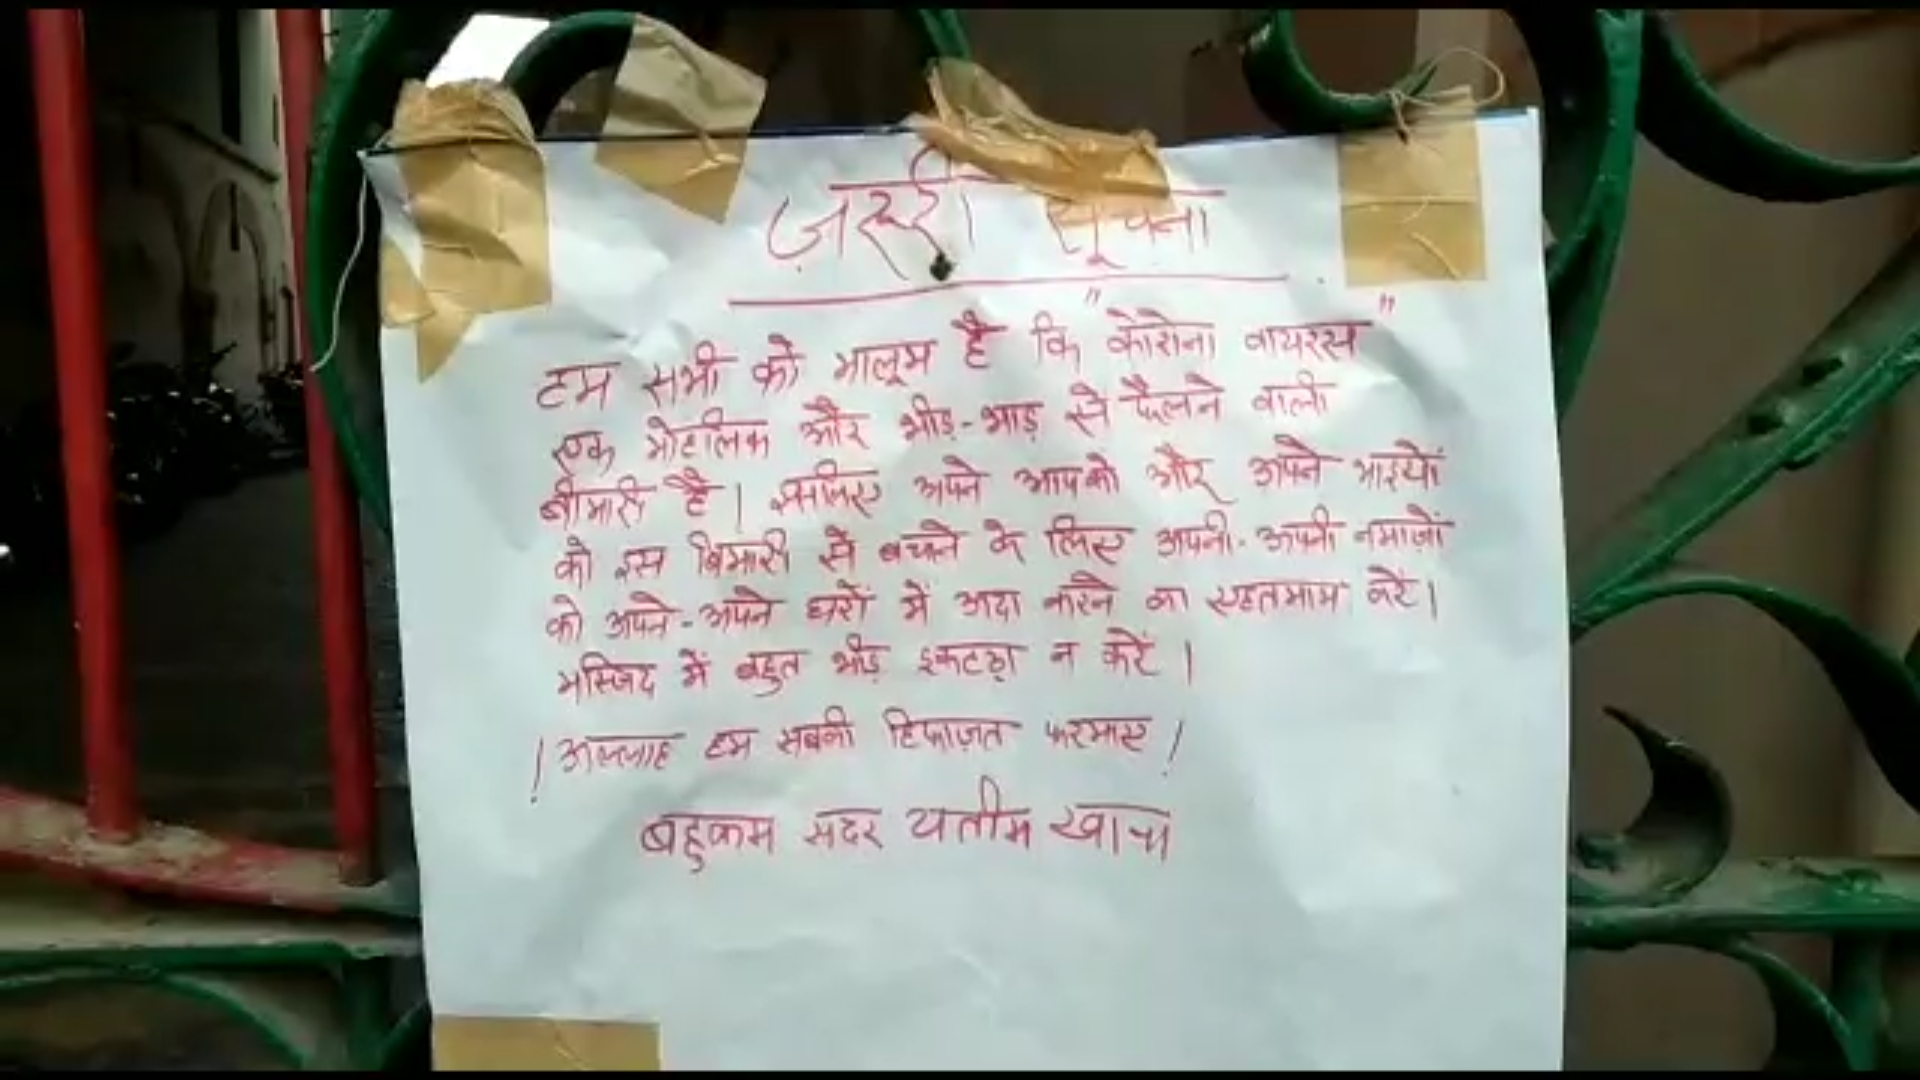 ज़रूरी सूचना
हम सभी को मालूम है कि "कोरोना वायरस"
एक मोहलिक और भीड़-भाड़ से फैलने वाली
बीमारी है। इसलिए अपने आपको और अपने भाइयों
को इस बिमारी से बचाने के लिए अपनी-अपनी नमाज़ों
को अपने-अपने घरों में अदा करने का एहतमाम करें।
मस्जिद में बहुत भीड़ इकटठा न करें।
! अल्लाह हम सबकी हिफाज़त फरमाए !
बहुकम सदर यतीम खाना